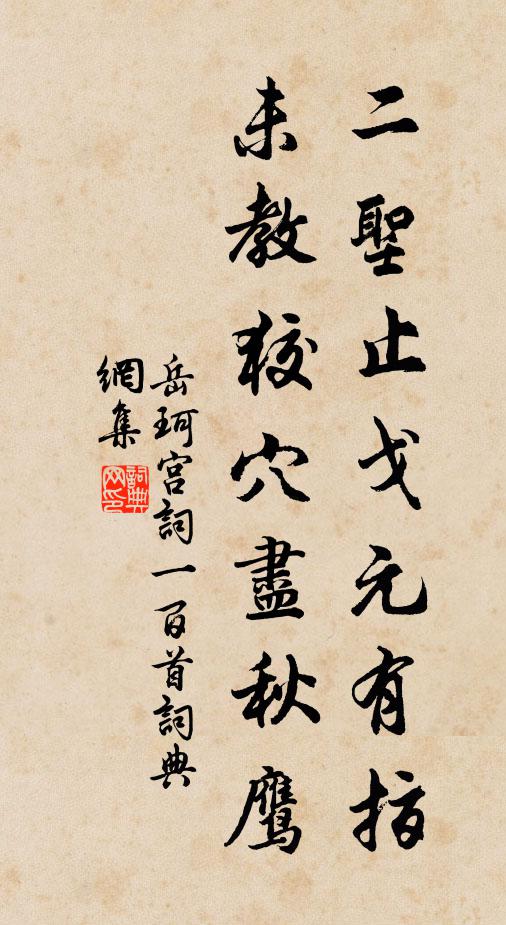 二聖止戈元有指
未教狡穴盡秋鷹
岳珂宮詞一百首詞典
網集
詞典網印